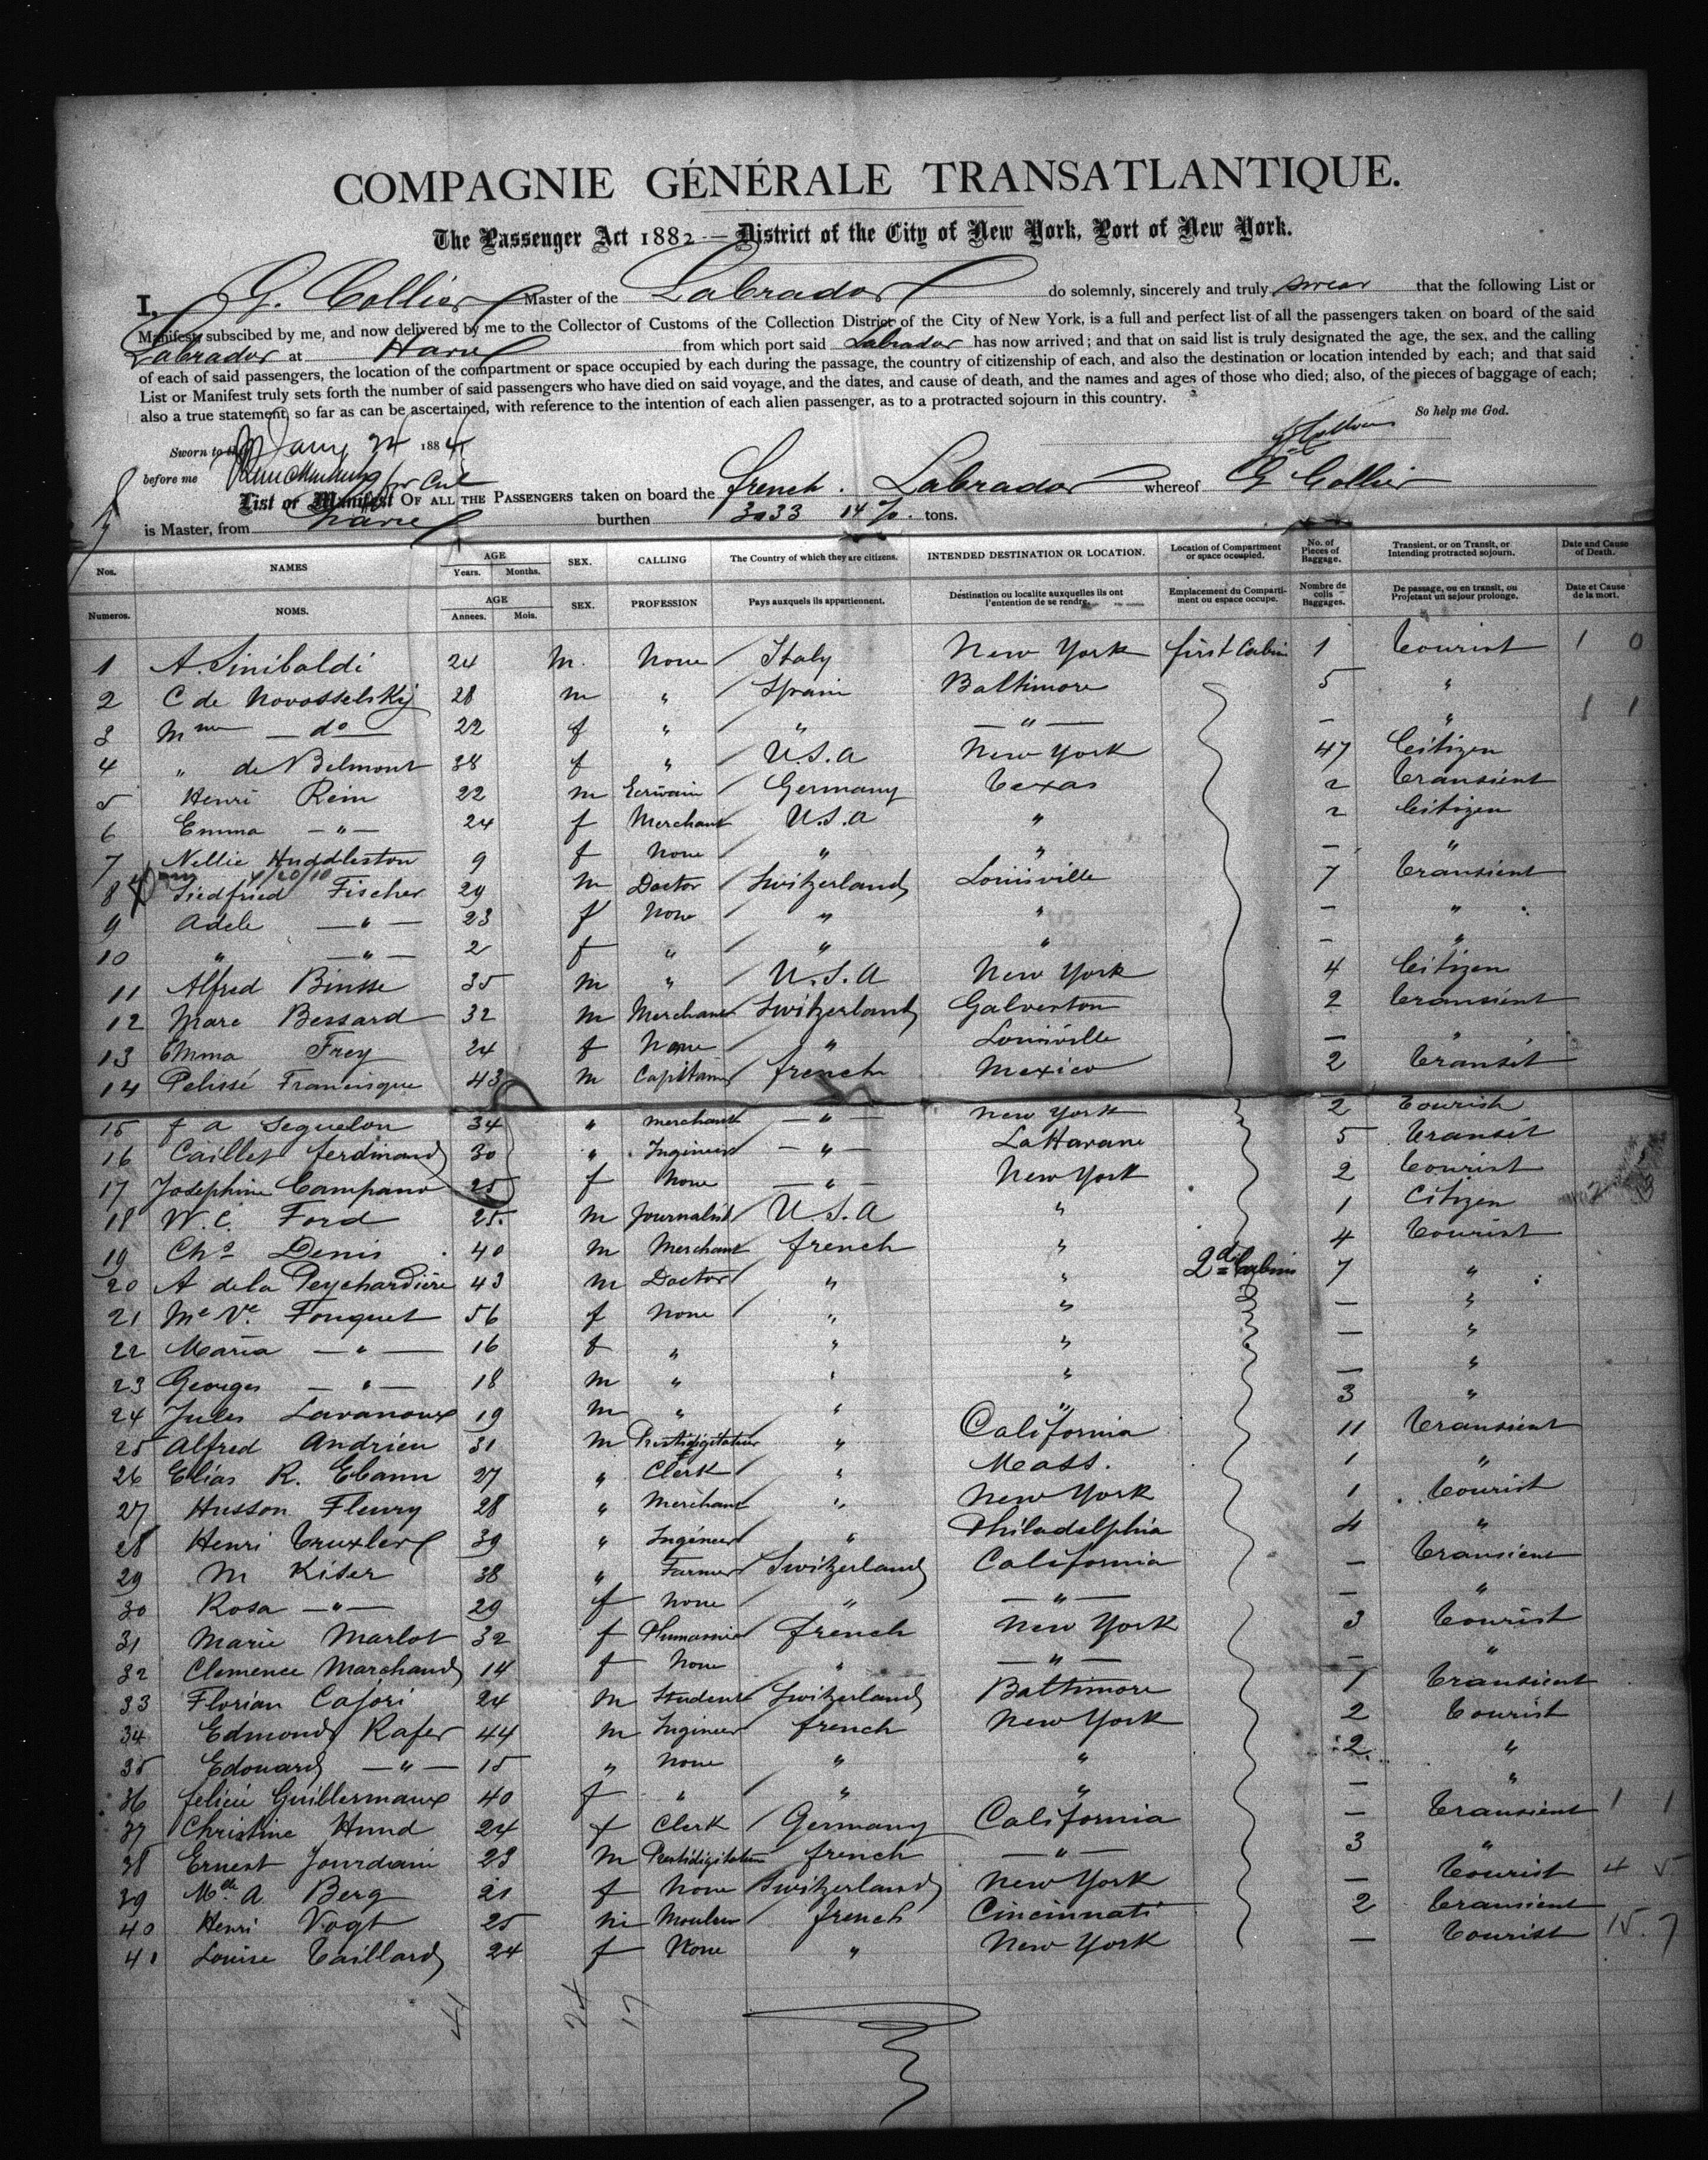 COMPAGNIE GÉNÉRALE TRANSATLANTIQUE.
The Passenger Act 1882 — District of the City of New York, Port of New York.
I, G. Collier Master of the Labrador do solemnly, sincerely and truly swear that the following List or
Manifest, subscibed by me, and now delivered by me to the Collector of Customs of the Collection District of the City of New York, is a full and perfect list of all the passengers taken on board of the said
Labrador at Havre from which port said Labrador has now arrived; and that on said list is truly designated the age, the sex, and the calling
of each of said passengers, the location of the compartment or space occupied by each during the passage, the country of citizenship of each, and also the destination or location intended by each; and that said
List or Manifest truly sets forth the number of said passengers who have died on said voyage, and the dates, and cause of death, and the names and ages of those who died; also, of the pieces of baggage of each;
also a true statement, so far as can be ascertained, with reference to the intention of each alien passenger, as to a protracted sojourn in this country.
So help me God.
Sworn to this Jany 24 1884
before me
List or Manifest OF ALL THE PASSENGERS taken on board the french Labrador whereof G Collier
is Master, from Havre burthen 3033 14 % tons.
Nos. NAMES AGE Years. Months. SEX. CALLING The Country of which they are citizens. INTENDED DESTINATION OR LOCATION. Location of Compartment or space occupied. No. of Pieces of Baggage. Transient, or on Transit, or Intending protracted sojourn. Date and Cause of Death.
Numeros. NOMS. AGE Annees. Mois. SEX. PROFESSION Pays auxquels ils appartiennent. Destination ou localite auxquelles ils ont l'entention de se rendre. Emplacement du Comparti-ment ou espace occupe. Nombre de colis Baggages. De passage, ou en transit, ou Projetant un sejour prolonge. Date et Cause de la mort.
1 A. Sinibaldi 24 m. None Italy New York first Cabin 1 Tourist 1 0
2 C de Novosselskij 28 m " Spain Baltimore 5 "
3 Mme — do — 22 f " " — " — — " 1 1
4 " de Belmont 38 f " U.S.A New York 47 Citizen
5 Henri Rein 22 m Ecrivain Germany Texas 2 Transient
6 Emma — " — 24 f Merchant U.S.A " 2 Citizen
7 Nellie Huddleston 9 f None " " — "
4/20/10
8 Siedfried Fischer 29 m Doctor Switzerland Louisville 7 Transient
9 Adele — " — 23 f None " " — "
10 " — " — 2 f " " " — "
11 Alfred Binsse 35 m " U.S.A New York 4 Citizen
12 Marc Bessard 32 m Merchant Switzerland Galveston 2 Transient
13 Emma Frey 24 f None " Louisville — "
14 Pelissé Francisque 43 m Capitaine french Mexico 2 Transit
15 f a Sequelon 34 " merchant — " — New York 2 Tourist
16 Caillet ferdinand 30 " Ingineer — " — La Havane 5 Transit
17 Josephine Campano 25 f None — " — New York 2 Tourist
18 W. C. Ford 25. m Journalist U.S.A " 1 Citizen
19 Chs Denis 40 m Merchant french " 4 Tourist
20 A de la Peychardière 43 m Doctor " " 2d Cabin 7 "
21 Me Ve Fouquet 56 f None " " — "
22 Maria — " — 16 f " " " — "
23 Georges — " — 18 m " " " — "
24 Jules Lavanoux 19 m " " " 3 "
25 Alfred Andrieu 31 m Prestidigitateur " California 11 Transient
26 Elias R. Ebann 27 " Clerk " Mass. 1 "
27 Husson Fleury 28 " Merchant " New York 1 Tourist
28 Henri Truxler 39 " Ingéneer " Philadelphia 4 "
29 M Kiser 38 " Farmer Switzerland California — Transient
30 Rosa — " — 29 f None " — " — — "
31 Marie Marlot 32 f french New York 3 Tourist
32 Clemence Marchand 14 f None " — " — — "
33 Florian Cajori 24 m Student Switzerland Baltimore 1 Transient
34 Edmond Rafer 44 m Ingineer french New York 2 Tourist
35 Edouard — " — 15 " None " " 2 "
36 felicié Guillermaux 40 f " " " — "
37 Christine Hund 24 f Clerk Germany California — Transient 1 1
38 Ernest Jourdain 23 m Prestidigitateur french — " — 3 "
39 Mlle A Berg 21 f None Switzerland New York — Tourist 4 5
40 Henri Vogt 25 m french Cincinnati 2 Transient
41 Louise Taillard 24 f None " New York — Tourist 15. 7
41 24 17